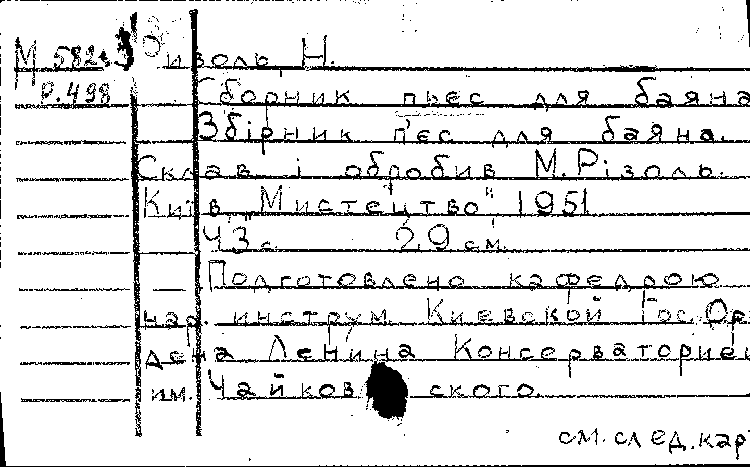 М 582.3 Ризоль, Н.
Р. 498 Сборник пьес для баяна
Збірник п'єс для баяна.
Склав і обробив М. Різоль.
Київ, "Мистецтво" 1951
43 с. 29 см.
Подготовлено кафедрою
нар. инструм. Киевской Гос. Ор
дена Ленина Консерваторией
им. Чайковского.
см. след. кар